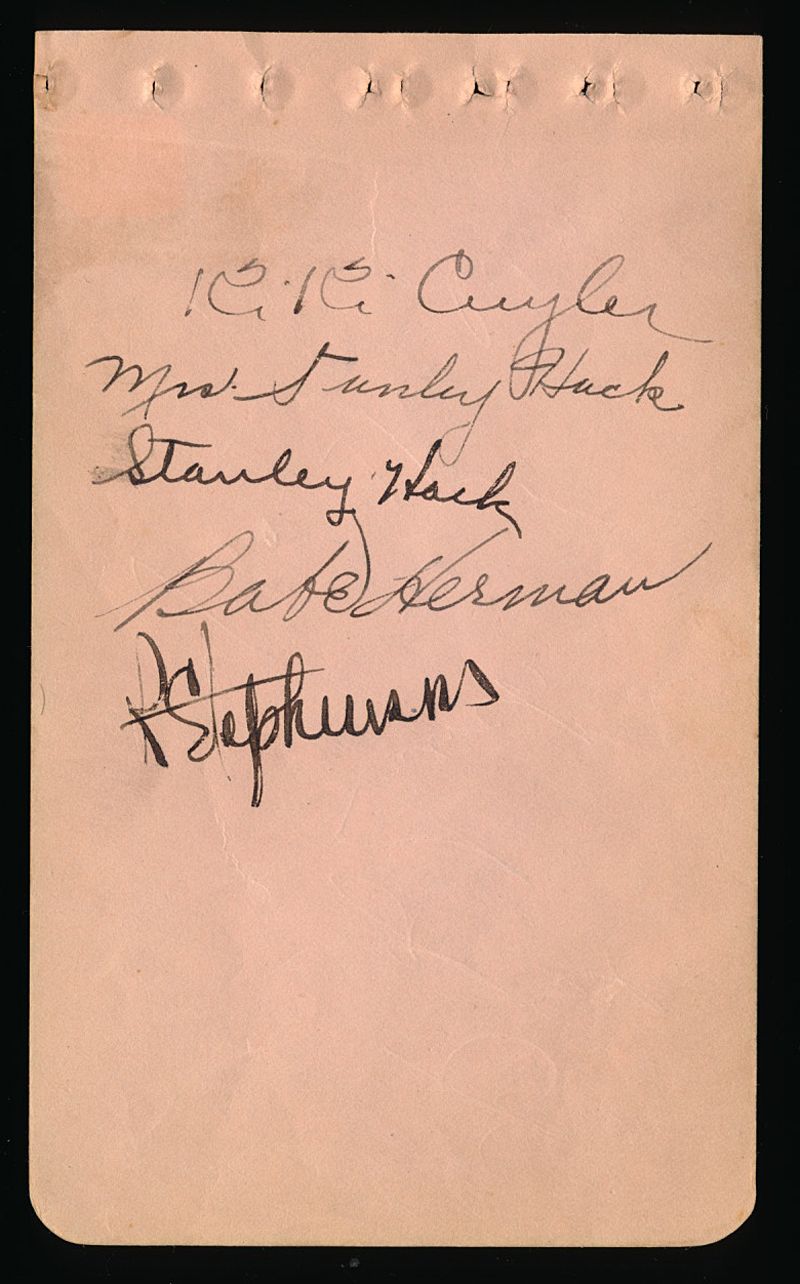 Ki Ki Cuyler
Mrs. Stanley Hack
Stanley Hack
Babe Herman